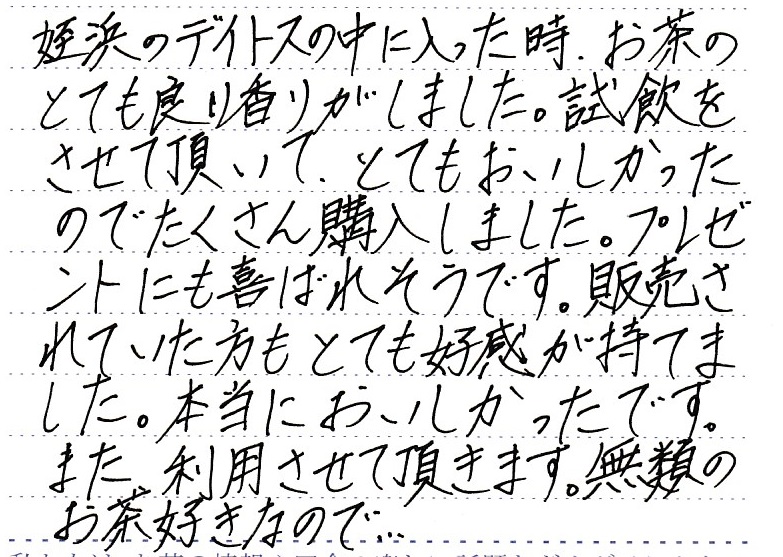 姪浜のデイトスの中に入った時、お茶の
とても良い香りがしました。試飲を
させて頂いて、とてもおいしかった
のでたくさん購入しました。プレゼ
ントにも喜ばれそうです。販売さ
れていた方もとても好感が持てま
した。本当においしかったです。
また、利用させて頂きます。無類の
お茶好きなので…